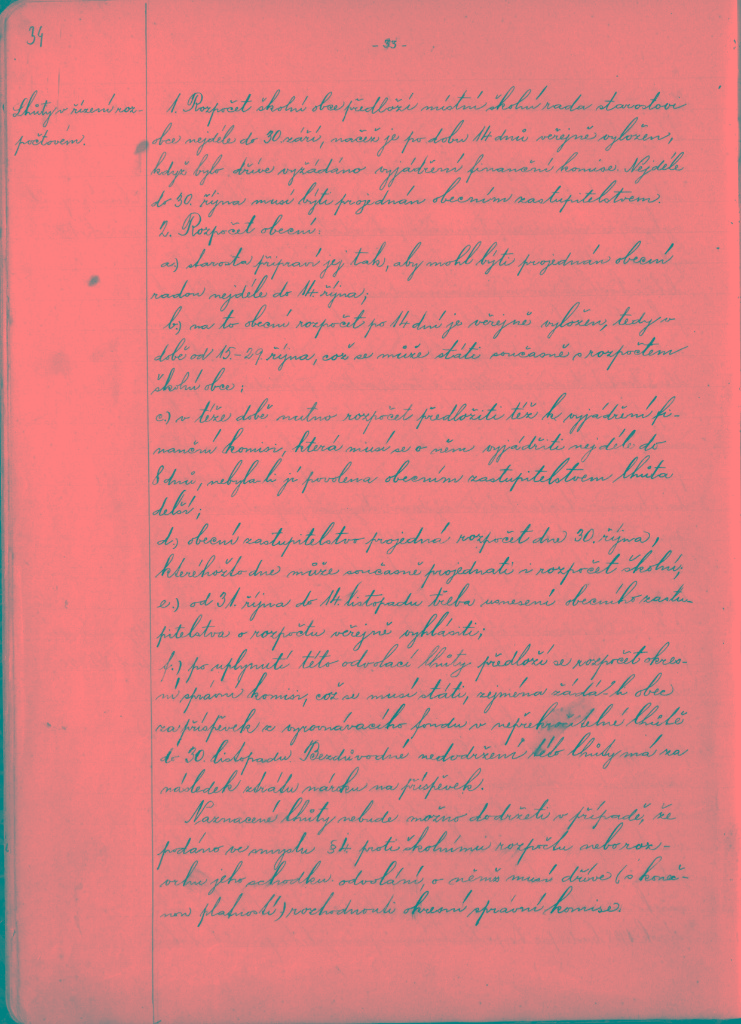 34
- 33 -
Lhůty v řízení roz-
počtovém.
1. Rozpočet školní obce předloží místní školní rada starostovi
obce nejdéle do 30. září, načež je po dobu 14 dnů veřejně vyložen,
když bylo dříve vyžádáno vyjádření finanční komise. Nejdéle
do 30. října musí býti projednán obecním zastupitelstvem.
2. Rozpočet obecní:
a.) starosta připraví jej tak, aby mohl býti projednán obecní
radou nejdéle do 14 října;
b.) na to obecní rozpočet po 14 dní je veřejně vyložen, tedy v
době od 15.-29. října, což se může státi současně s rozpočtem
školní obce;
c.) v téže době nutno rozpočet předložiti též k vyjádření fi-
nanční komisi, která musí se o něm vyjádřiti nejdéle do
8 dnů, nebyla-li jí povolena obecním zastupitelstvem lhůta
delší;
d.) obecní zastupitelstvo projedná rozpočet dne 30. října,
kteréhožto dne může současně projednati i rozpočet školní;
e.) od 31. října do 14. listopadu třeba usnesení obecního zastu-
pitelstva o rozpočtu veřejně vyhlásiti;
f.) po uplynutí této odvolací lhůty předloží se rozpočet okres-
ní správní komisi, což se musí státi, zejména žádá-li obec
za příspěvek z vyrovnávacího fondu v nepřekročitelné lhůtě
do 30. listopadu. Bezdůvodné nedodržení této lhůty má za
následek ztrátu nároku na příspěvek.
Naznačené lhůty nebude možno dodržeti v případě, že
podáno ve smyslu § 4 proti školnímu rozpočtu nebo roz-
vrhu jeho schodku odvolání, o němž musí dříve (s koneč-
nou platností) rozhodnouti okresní správní komise.